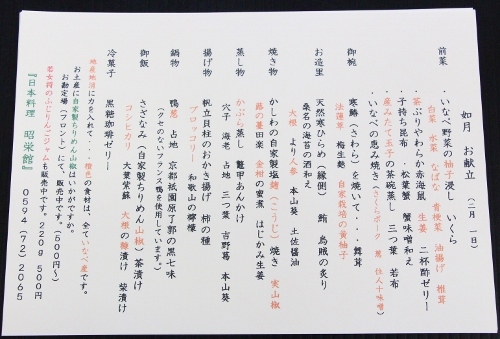 如月 お献立 (二月 一日)
前菜 ・いなべ野菜の柚子浸し いくら
白菜 水菜 なばな 青梗菜 油揚げ 椎茸
・茶ぶりやわらか赤海鼠 生姜 二杯酢ゼリー
・子持ち昆布 ・松葉蟹 蟹味噌和え
・産みたて玉子の茶碗蒸し 三つ葉 若布
・いなべの恵み焼き(さくらポーク 葱 仕人十味噌)
御椀 寒鰆(さわら)を焼いて・・・舞茸
法蓮草 梅生麩 自家栽培の黄柚子
お造里 天然寒ひらめ(縁側) 鮪 烏賊の炙り
桑名の海苔の酒和え
大根 より人参 本山葵 土佐醤油
焼き物 かしわの自家製塩麹(こうじ)焼き 実山椒
蕗の薹田楽 金柑の蜜煮 はじかみ生姜
蒸し物 かぶら蒸し 鼈甲あんかけ
穴子 海老 占地 三つ葉 吉野葛 本山葵
揚げ物 帆立貝柱のおかき揚げ 柿の種
ブロッコリー 和歌山の檸檬
鍋物 鴨葱 占地 京都祇園原了郭の黒七味
(クセのないフランス鴨を使用しています。)
御飯 さざなみ(自家製ちりめん山椒)茶漬け
コシヒカリ 大葉紫蘇 大根の糠漬け 柴漬け
冷菓子 黒糖珈琲ゼリー
地産地消に力を入れて・・・橙色の食材は、全ていなべ産です。
お土産に自家製ちりめん山椒はいかがですか。
お勘定場(フロント)にて、販売中です。(500円~)
若女将のふじりんごジャムも販売中です。220g 500円
『日本料理 昭栄館』 0594(72)2065